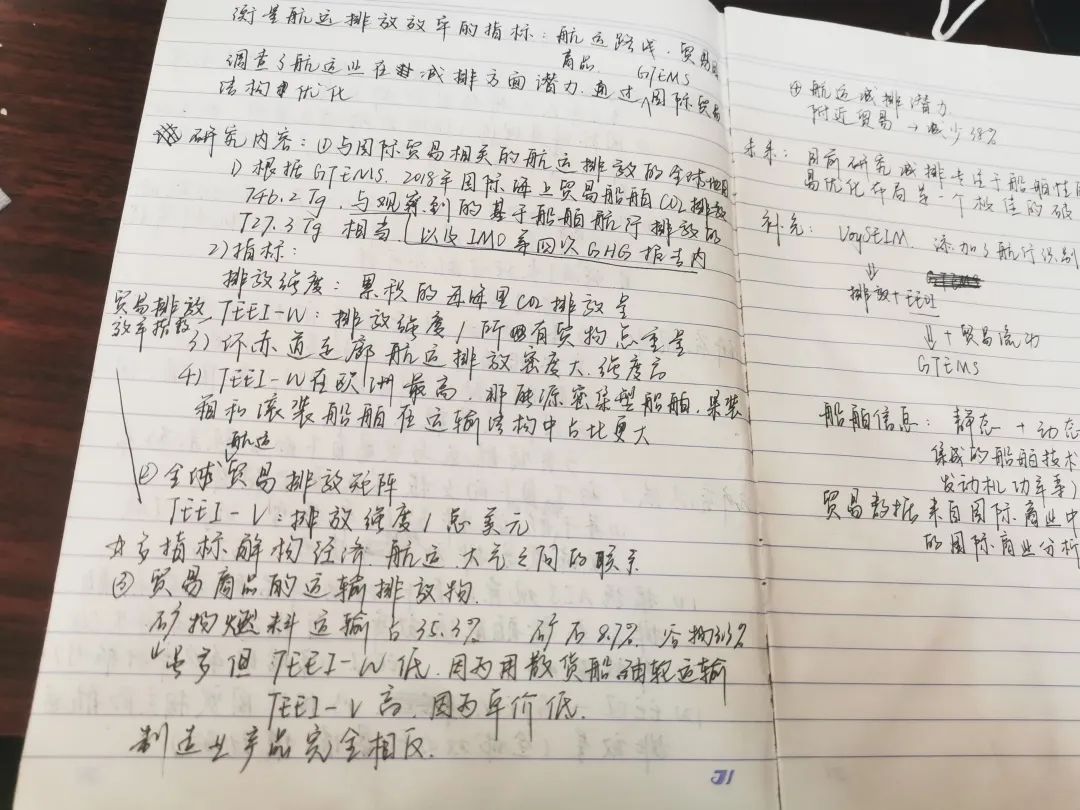 衡量航运排放效率的指标：航运路线、贸易
商品. GTEMS
调查了航运业在减排方面潜力.通过^国际贸易
结构优化
研究内容：①与国际贸易相关的航运排放的全球地图
1) 根据GTEMS. 2018年国际海上贸易船舶CO2排放
746.2Tg, 与观察到的基于船舶航行排放的
727.3Tg 相当.(以及IMO第四次GHG报告内
2)指标：
排放强度：累积的每海里CO2排放量
贸易排放
效率指数 TEEI-W：排放强度/所有货物总重量
3) 环赤道走廊航运排放密度大.强度高
4) TEEI-W在欧洲最高, 非能源密集型船舶,集装
箱和滚装船舶在运输结构中占比更大
航运
②全球贸易排放矩阵
TEEI-V：排放强度/总美元
☆多指标解构经济.航运.大气之间的联系
③ 贸易商品的运输排放物.
矿物燃料运输占35.3% 矿石8.7% 谷物
量多但TEEI-W低.因为用散货船油轮运输
TEEI-V高.因为单价低.
制造业产品完全相反.
④航运减排潜力
附近贸易→减少38%
未来：目前研究减排专注于船舶性能
易优化布局是一个
补充：VoySEIM. 添加了航行识别
⇓
排放+EEOI
⇓ +贸易流动
GTEMS
船舶信息：静态+动态
集成的船舶技术
发动机功率等)
贸易数据来自国际商业中
的国际商业分析